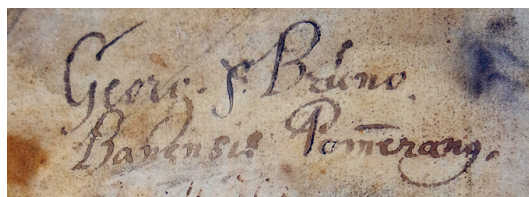 Georg. Brúno
Banensis Pom̄eranꝰ.